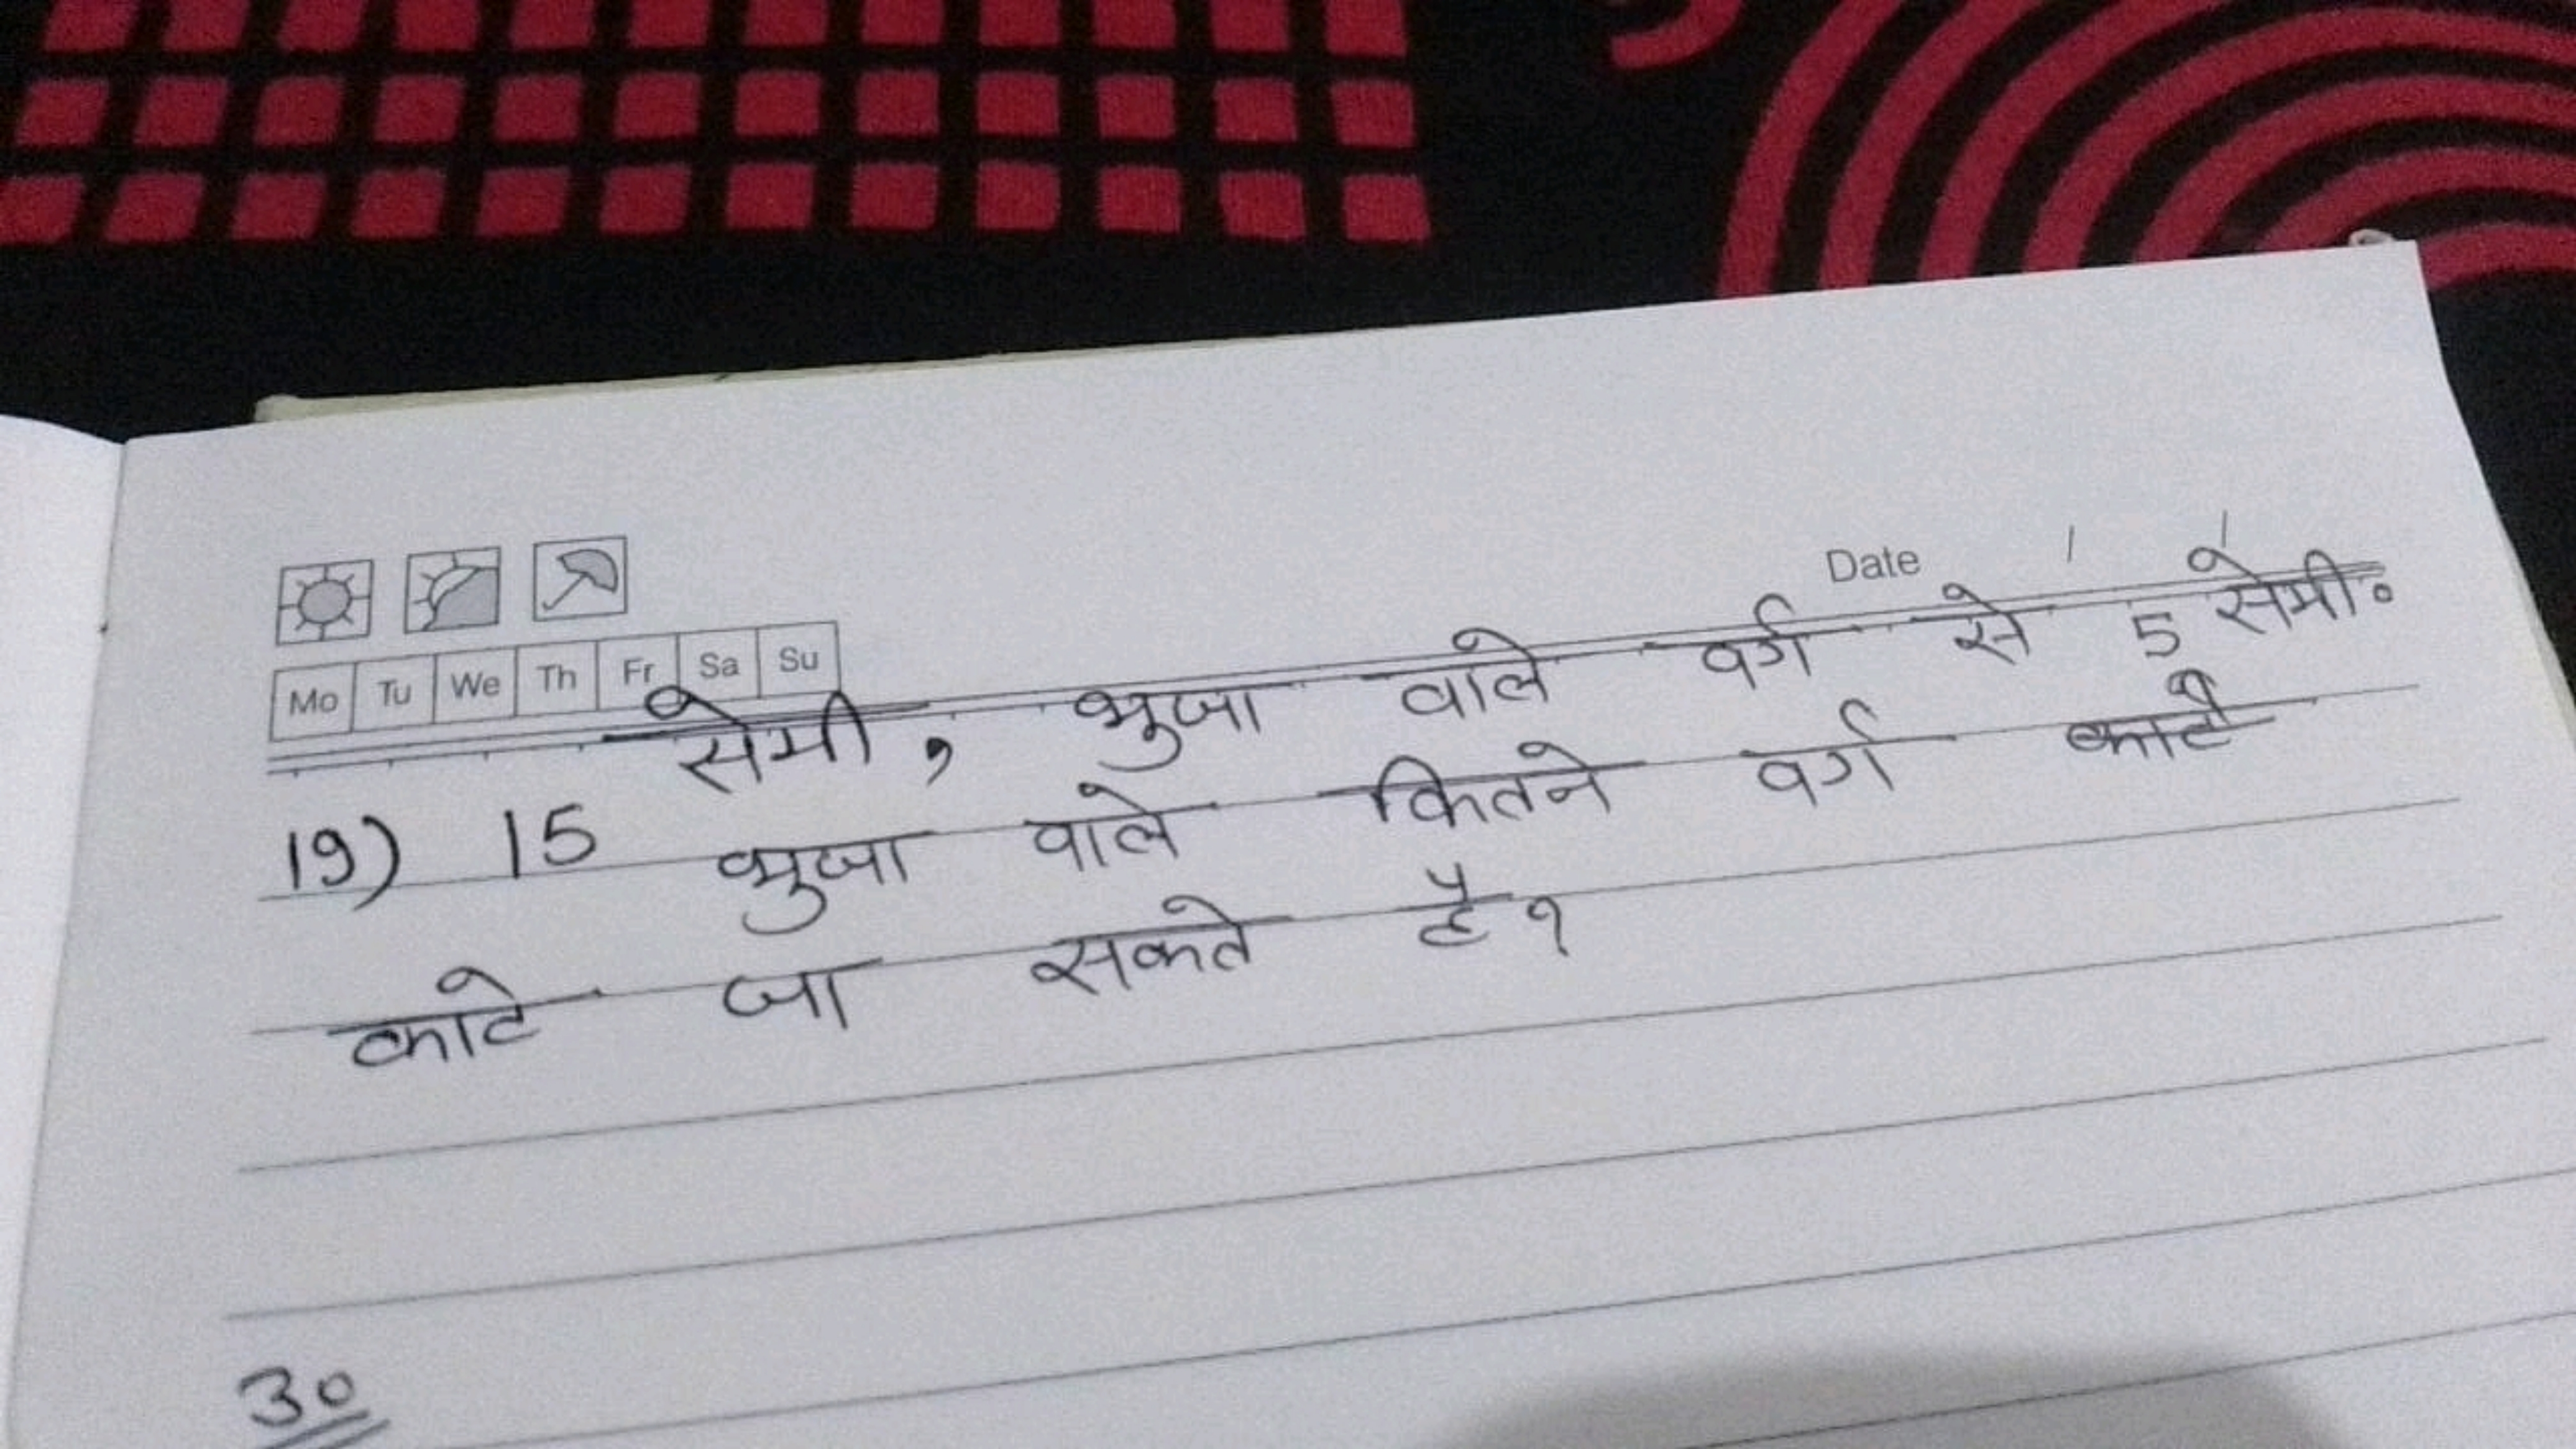 Date / /
Mo Tu We Th Fr Sa Su
19) 15 सेमी, भुजा वाले वर्ग से 5 सेमी०
भुजा वाले कितने वर्ग काटे
काटे जा सकते है?
उ०